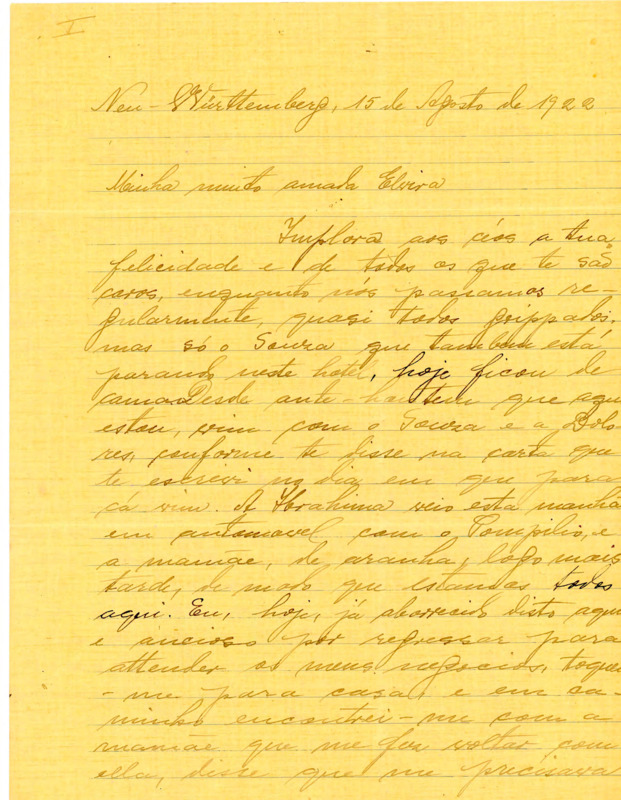 I
Neu-Württemberg, 15 de Agosto de 1922
Minha muito amada Elvira
Imploro aos céos a tua
felicidade e de todos os que te são
caros, enquanto nós passamos re-
gularmente, quasi todos grippados,
mas só o Souza que tambem está
parando neste hotel, hoje ficou de
cama. Desde ante-hontem que aqui
estou, vim com o Souza e a Dolo-
res, conforme te disse na carta que
te escrevi no dia em que para
cá vim. A Ibrahima veio esta manhã
em automovel com o Pompilio, e
a mamãe, de aranha, logo mais
tarde, de modo que estamos todos
aqui. Eu, hoje, já aborrecido disto aqui
e ancioso por regressar para
attender os meus negocios, toquei
-me para casa, e em ca-
minho encontrei-me com a
mamãe que me fez voltar com
ella, disse que me precisava